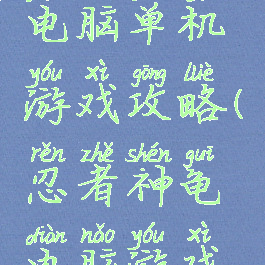 电脑单机
yóu xì gōng lüè
游戏攻略(
rěn zhě shén guī
忍者神龟
diàn nǎo yóu xì
电脑游戏